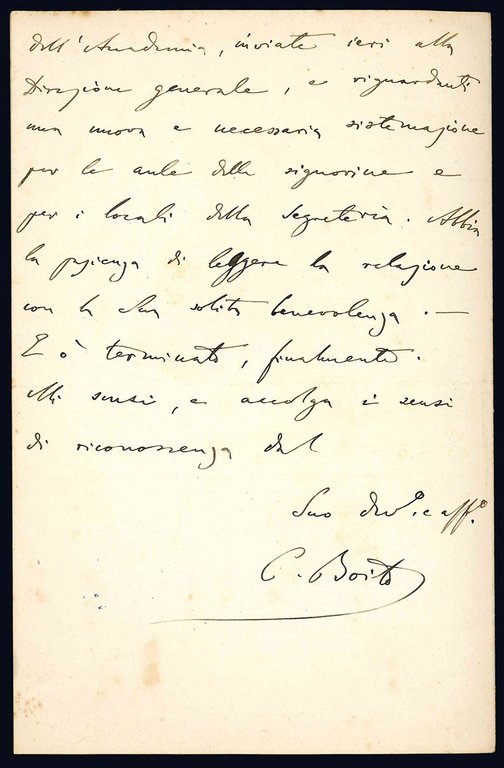 dell'Accademia, inviate ieri alla
Direzione generale, e riguardanti
una nuova e necessaria sistemazione
per le aule delle signorine e
per i locali della Segreteria. Abbia
la pazienza di leggere la relazione
con la Sua solita benevolenza. —
E ò terminato, finalmente.
Mi scusi, e accolga i sensi
di riconoscenza dal
Suo dev.º e aff.º
C. Boito